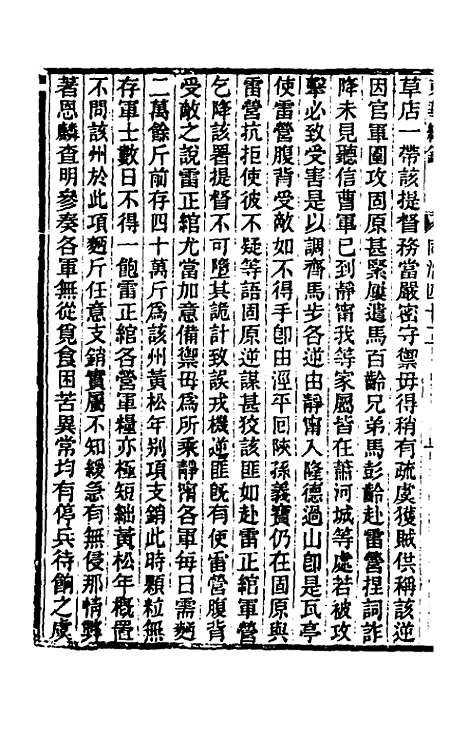 草店一帶該提督務當嚴密守禦毋得稍有疏虞獲賊供稱該逆
因官軍圍攻固原甚緊屢遣馬百齡兄弟馬彭齡赴雷營捏詞詐
降未見聽信曹軍已到靜甯我等家屬皆在蕭河城等處若被攻
擊必致受害是以調齊馬步各逆由靜甯入隆德過山卽是瓦亭
使雷營腹背受敵如不得手卽由涇平回陝孫義寶仍在固原與
雷營抗拒使彼不疑等語固原逆謀甚狡該匪如赴雷正綰軍營
乞降該署提督不可墮其詭計致誤戎機逆匪旣有使雷營腹背
受敵之說雷正綰尤當加意備禦毋爲所乘靜甯各軍每日需麵
二萬餘斤前存四十萬斤爲該州黃松年别項支銷此時顆粒無
存軍士數日不得一飽雷正綰各營軍糧亦極短絀黃松年槪置
不問該州於此項麵斤任意支銷實屬不知緩急有無侵那情弊
著恩麟查明參奏各軍無從覓食困苦異常均有停兵待餉之虞